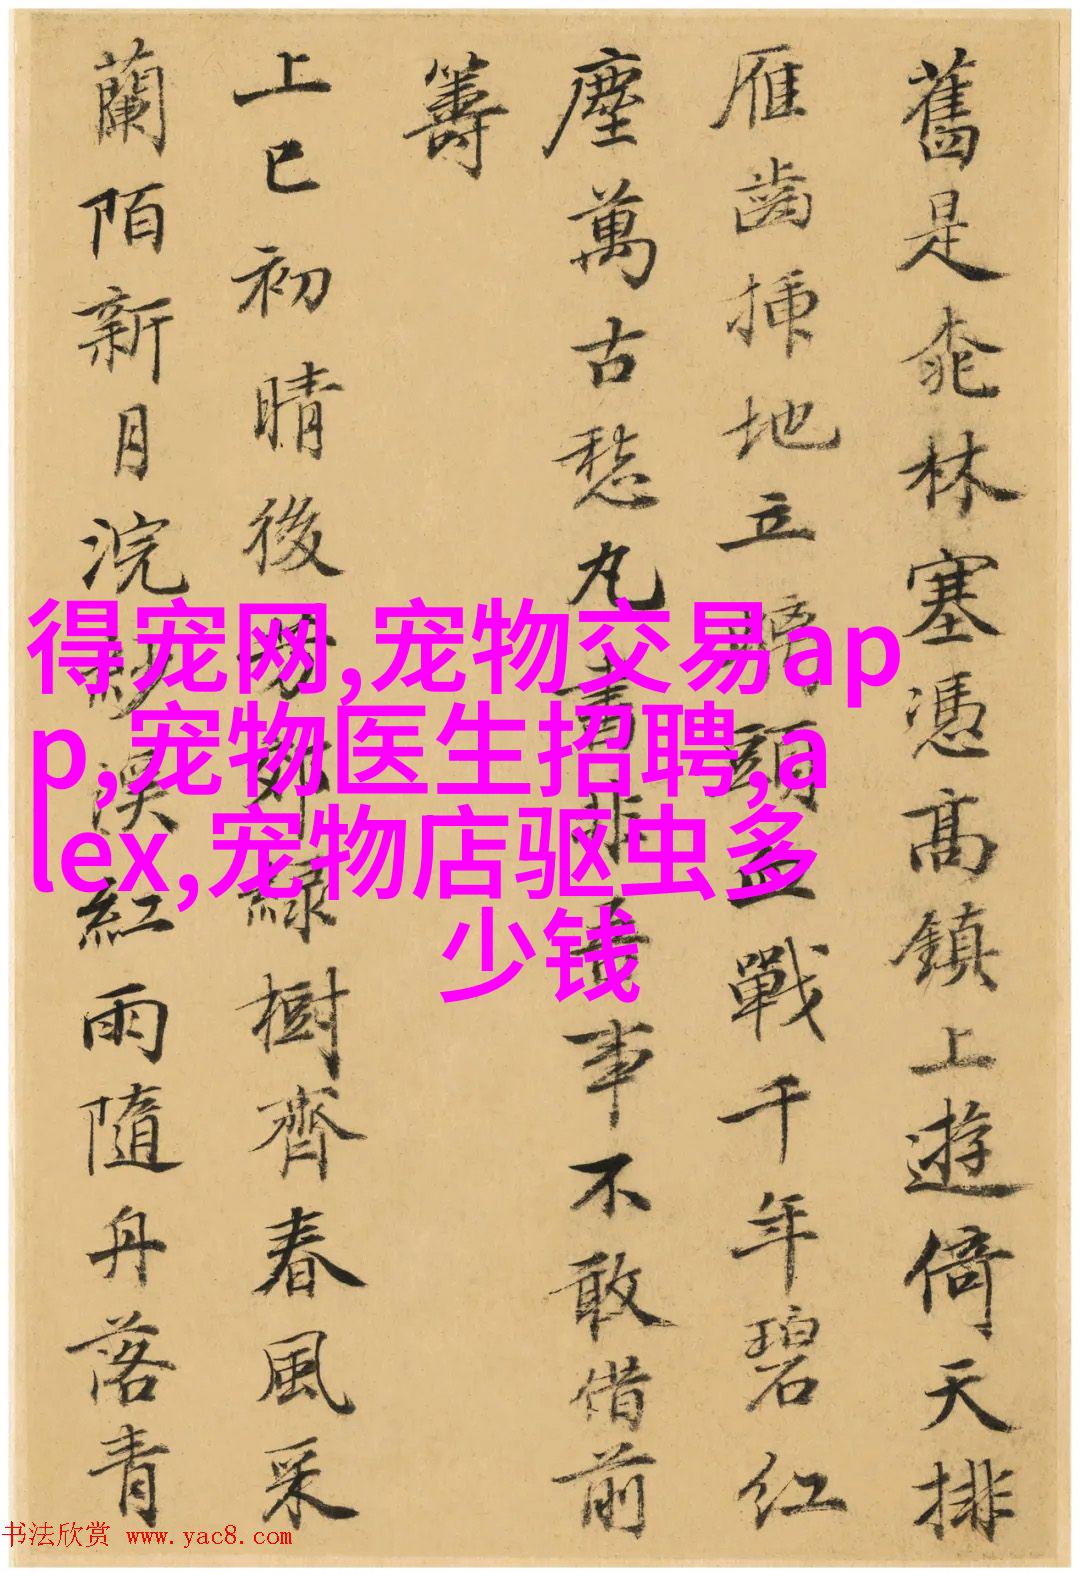 舊是桃林塞憑高鎮上遊倚天排
雁齒插地立頭血戰千年碧紅
塵萬古愁丸書非吾事不敢借前
籌
上巳初晴後綠樹齊春風采
蘭陌新月浣紗溪紅雨隨舟落青
得宠网,宠物交易ap
p,宠物医生招聘,a
lex,宠物店驱虫多
少钱
书法欣赏 www.yac8.com